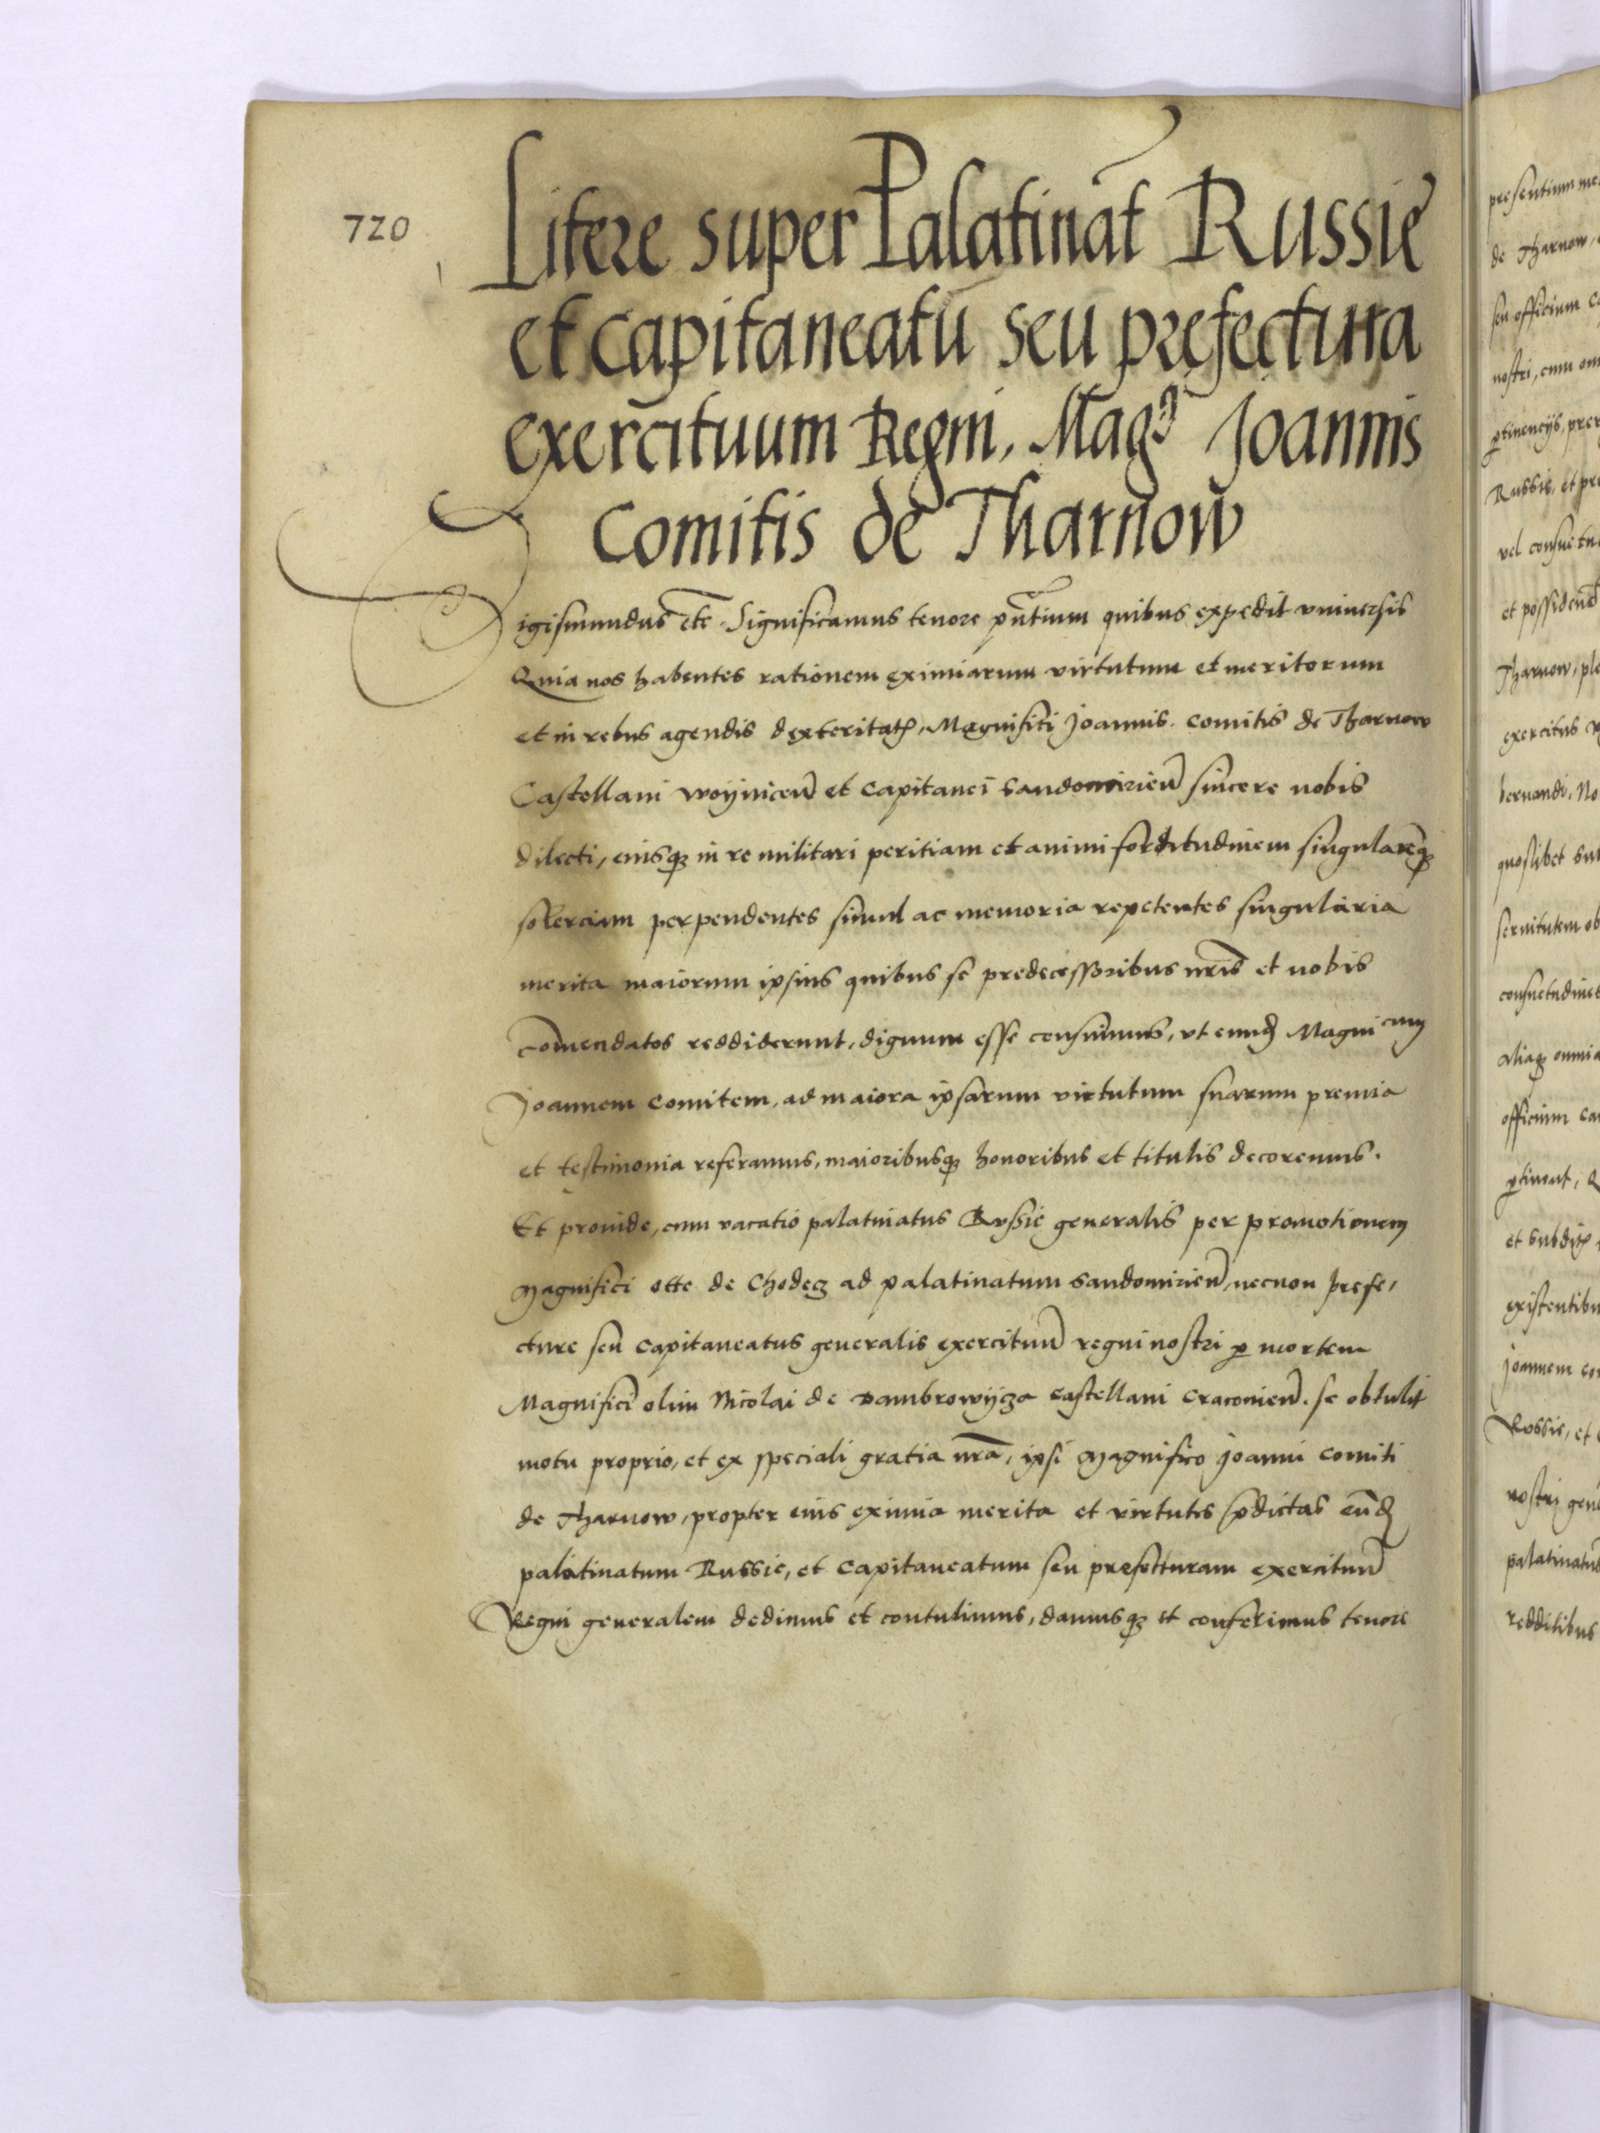 720
Litere super Palatinat Russie
et capitaneatu seu prefectura
exercituum Regni, Magci Joannis
Comitis de Tharnow
Sigismundus etc. Significamus tenore pntium quibus expedit vniuersis
Quia nos habentes rationem eximiarum virtutum et meritorum
et in rebus agendis dexteritatem, Magnifici Joannis comitis de Tharnow
Castellani woynicen̄ et Capitanei Sandomirien̄ sincere nobis
dilecti, eiusq; in re militari peritiam et animi fortitudinem singularēq;
solerciam perpendentes simul ac memoria repetentes singularia
merita maiorum ipsius quibus se predecessoribus nr̄is et nobis
com̄endatos reddiderunt, dignum esse censuimus, vt eund Magnicum
Joannem comitem, ad maiora ipsarum virtutum suarum premia
et testimonia referamus, maioribusq; honoribus et titulis decoremus.
Et prouide, cum vacatio palatinatus Russie generalis per promotionem
Magnifici otte de Chodecz ad palatinatum Sandomirien̄, necnon prefe,
cture seu Capitaneatus generalis exercituū regni nostri p mortem
Magnifici olim Nicolai de Dambrowycza castellani Cracouien̄. se obtulit
motu proprio, et ex speciali gratia nr̄a, ipsi Magnifico Joanni comiti
de Tharnow, propter eius eximia merita et virtutes pdictas eūd
palatinatum Russie, et Capitaneatum seu prefectturam exercituū
Regni generalem dedimus et contulimus, damusq; et conferimus tenore
presentium me
de Tharnow,
seu officium C
nostri, cum om
ptinencijs, prer
Russie, et pre
vel consuetu
et possidend
Tharnow, ple
exercitus
seruandi. No
quoslibet
seruitutem ob
consuetudines
aliaq; omnia
officium ca
ptinent,
et subdit
existentibu
Joannem com
Russie, et
nostri gen
palatinatu
redditibus